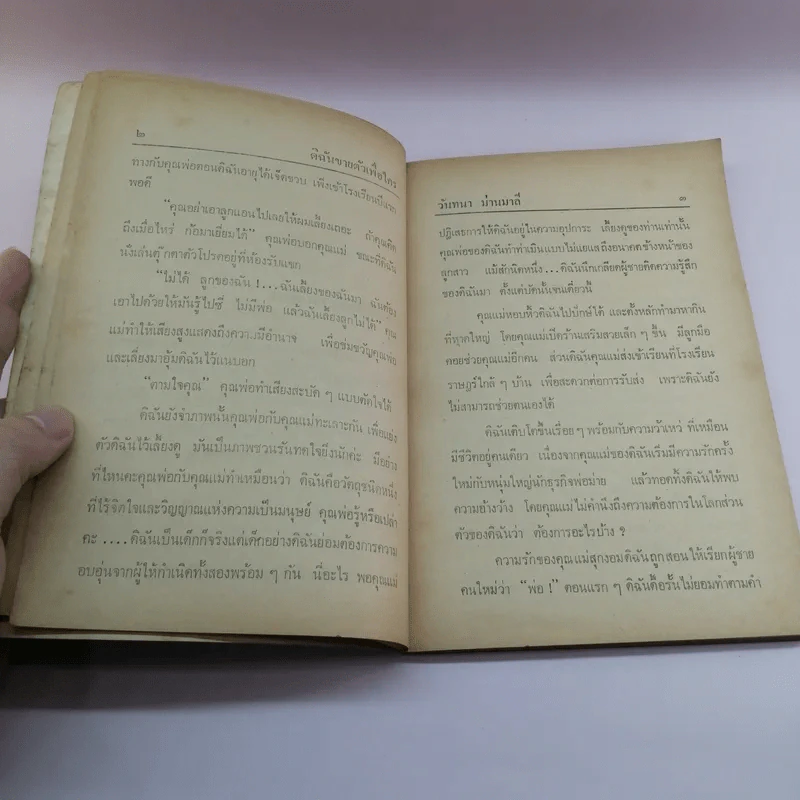 ๒
ดิฉันขายตัวเพื่อใคร
ทางกับคุณพ่อตอนดิฉันอายุได้เจ็ดขวบ เพิ่งเข้าโรงเรียนปีแรก
พอดี
“คุณอย่าเอาลูกแอนไปเลยให้ผมเลี้ยงเถอะ ถ้าคุณคิด
ถึงเมื่อไหร่ ก็มาเยี่ยมได้” คุณพ่อบอกคุณแม่ ขณะที่ดิฉัน
นั่งเล่นตุ๊กตาตัวโปรดอยู่ที่ห้องรับแขก
“ไม่ได้ ลูกของฉัน !...ฉันเลี้ยงของฉันมา ฉันต้อง
เอาไปด้วยให้มันรู้ไปซี่ ไม่มีพ่อ แล้วฉันเลี้ยงลูกไม่ได้” คุณ
แม่ทำให้เสียงสูงแสดงถึงความมีอำนาจ เพื่อข่มขวัญคุณพ่อ
และเลี่ยงมาอุ้มดิฉันไว้แนบอก
“ตามใจคุณ” คุณพ่อทำเสียงสะบัด ๆ แบบตัดใจได้
ดิฉันยังจำภาพนั้นคุณพ่อกับคุณแม่ทะเลาะกัน เพื่อแย่ง
ตัวดิฉันไว้เลี้ยงดู มันเป็นภาพชวนรันทดใจยิ่งนักค่ะ มีอย่าง
ที่ไหนคะคุณพ่อกับคุณแม่ทำเหมือนว่า ดิฉันคือวัตถุชนิดหนึ่ง
ที่ไร้จิตใจและวิญญาณแห่งความเป็นมนุษย์ คุณพ่อรู้หรือเปล่า
คะ ....ดิฉันเป็นเด็กก็จริงแต่เด็กอย่างดิฉันย่อมต้องการความ
อบอุ่นจากผู้ให้กำเนิดทั้งสองพร้อม ๆ กัน นี่อะไร พอคุณแม่
วันทนา ม่านมาลี
๓
ปฏิเสธการให้ดิฉันอยู่ในความอุปการะ เลี้ยงดูของท่านเท่านั้น
คุณพ่อของดิฉันทำท่าเมินแบบไม่แยแสถึงอนาคตข้างหน้าของ
ลูกสาว แม้สักนิดหนึ่ง...ดิฉันนึกเกลียดผู้ชายติดความรู้สึก
ของดิฉันมา ตั้งแต่บัดนั้นจนเดี๋ยวนี้
คุณแม่หอบหิ้วดิฉันไปปักษ์ใต้ และตั้งหลักทำมาหากิน
ที่หาดใหญ่ โดยคุณแม่เปิดร้านเสริมสวยเล็ก ๆ ขึ้น มีลูกมือ
คอยช่วยคุณแม่อีกคน ส่วนดิฉันคุณแม่ส่งเข้าเรียนที่โรงเรียน
ราษฎร์ใกล้ ๆ บ้าน เพื่อสะดวกต่อการรับส่ง เพราะดิฉันยัง
ไม่สามารถช่วยตนเองได้
ดิฉันเติบโตขึ้นเรื่อย ๆ พร้อมกับความว้าเหว่ ที่เหมือน
มีชีวิตอยู่คนเดียว เนื่องจากคุณแม่ของดิฉันเริ่มมีความรักครั้ง
ใหม่กับหนุ่มใหญ่นักธุรกิจพ่อม่าย แล้วทอดทิ้งดิฉันให้พบ
ความอ้างว้าง โดยคุณแม่ไม่คำนึงถึงความต้องการในโลกส่วน
ตัวของดิฉันว่า ต้องการอะไรบ้าง ?
ความรักของคุณแม่สุกงอมดิฉันถูกสอนให้เรียกผู้ชาย
คนใหม่ว่า “พ่อ !” ตอนแรก ๆ ดิฉันดื้อรั้นไม่ยอมทำตามคำ